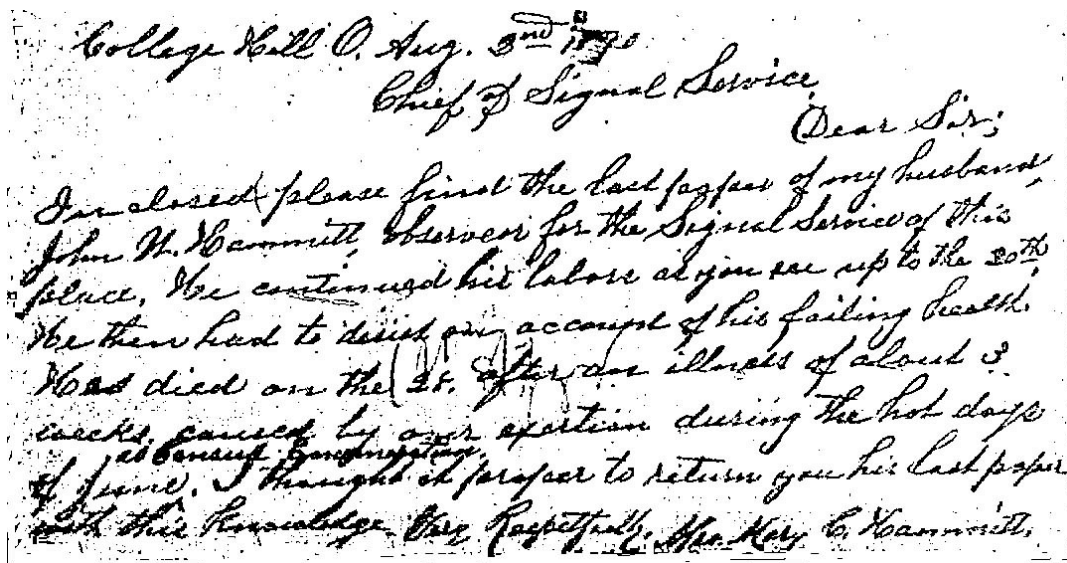 College Hill O. Aug. 2nd 1890
Chief of Signal Service,
Dear Sir;
Inclosed please find the last paper of my husband,
John W. Hammitt, observer for the Signal Service of this
place. He continued his labors as you see up to the 20th.
He then had to desist on account of his failing health.
He died on the 28. after an illness of about 3
weeks, caused by over exertion during the hot days
as Census Enumerator.
of June. I thought it proper to return you his last paper
with this knowledge. Very Respectfully, Mrs. Mary C. Hammitt.